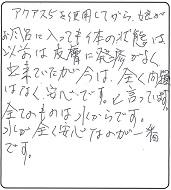 アクアス5を使用してから、娘が
お風呂に入っても体の状態は、
以前は皮膚に発疹がよく
出来ていたが今は、全く問題
はなく安心です。と言って居
全てのものは水からです。
水が全く安心なのが一番
です。